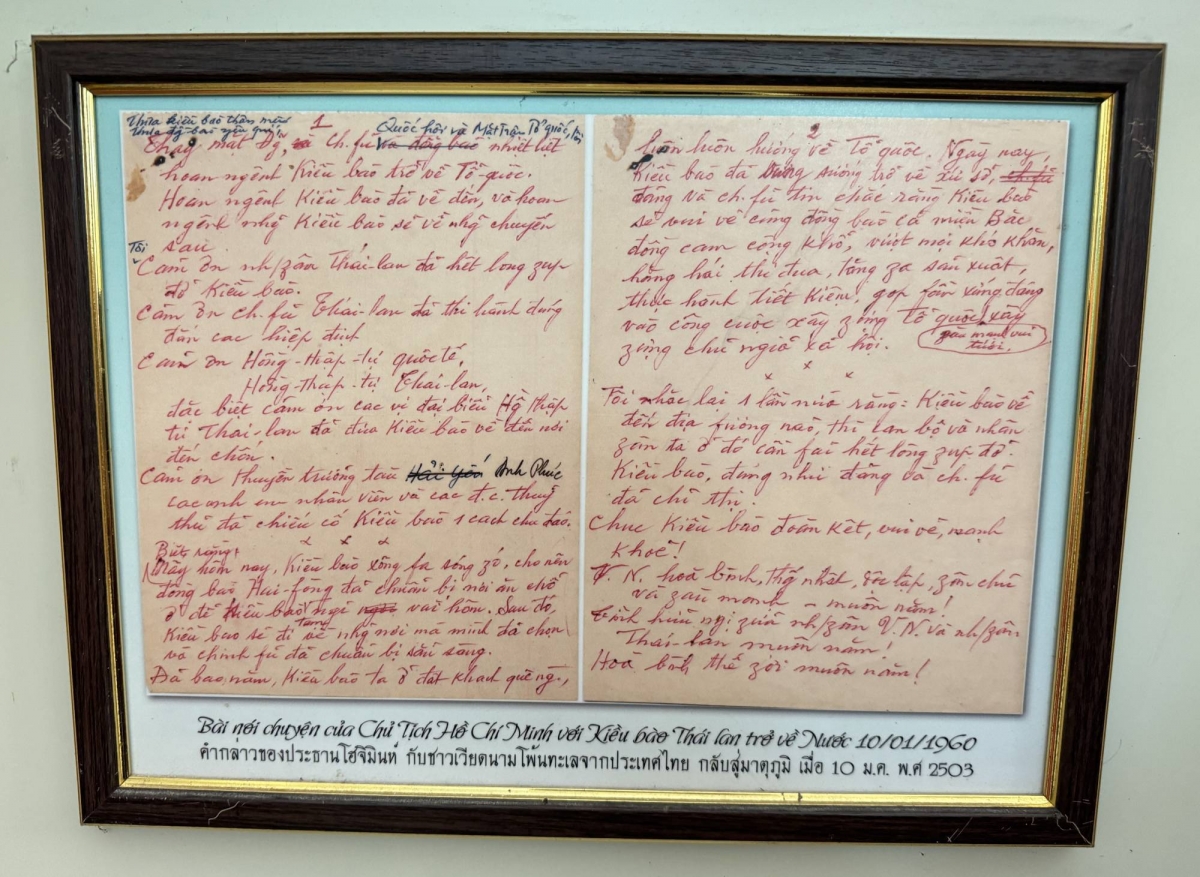 Thưa kiều bào thân mến
Thưa đg-bào yêu quý,
1
Quốc hội và Mặt trận Tổ quốc, tôi
Thay mặt Đg, và ch.fủ và đồng bào nhiệt liệt
hoan nghênh Kiều bào trở về Tổ-quốc.
Hoan nghênh Kiều bào đã về đến, và hoan
nghênh nhg Kiều bào sẽ về nhg chuyến
sau.
Tôi
Cảm ơn nh/zân Thái-lan đã hết lòng zúp
đỡ Kiều bào.
Cảm ơn ch.fủ Thái-lan đã thi hành đúng
đắn các hiệp định
Cảm ơn Hồng-thập-tự quốc tế,
Hồng-thập-tự Thái-lan,
đặc biệt cảm ơn các vị đại biểu Hg thập
tự Thái-lan đã đưa Kiều bào về đến nơi
đến chốn.
Cảm ơn thuyền trưởng tàu Anh Phúc
các anh em nhân viên và các đ.c. thuỷ
thủ đã chiếu cố Kiều bào 1 cách chu đáo.
x x x
Biết rằng:
Mấy hôm nay, Kiều bào xông fa sóng zó, cho nên
đồng bào Hải-fòng đã chuẩn bị nơi ăn chỗ
ở để Kiều bào nghỉ vài hôm. Sau đó,
Kiều bào sẽ đi về nhg nơi mà mình đã chọn
và chính fủ đã chuẩn bị sẵn sàng.
Đã bao năm, Kiều bào ta ở đất khách quê ng.,
2
luôn luôn hướng về Tổ quốc. Ngày nay,
Kiều bào đã sung sướng trở về xứ sở, ch.fủ
đảng và ch.fủ tin chắc rằng Kiều bào
sẽ vui vẻ cùng đồng bào cả miền Bắc
đồng cam cộng khổ, vượt mọi khó khăn,
hăng hái thi đua, tăng za sản xuất,
thực hành tiết kiệm, góp fần xứng đáng
vào công cuộc xây zựng Tổ quốc, xây
zựng chủ nghĩa xã hội.
x x x
Tôi nhắc lại 1 lần nữa rằng: Kiều bào về
đến địa fương nào, thì cán bộ và nhân
zân ta ở đó cần fải hết lòng zúp đỡ
Kiều bào, đúng như đảng và ch.fủ
đã chỉ thị.
Chúc Kiều bào đoàn kết, vui vẻ, mạnh
khoẻ!
V.N. hoà bình, thg nhất, độc lập, zân chủ
và zàu mạnh - muôn năm!
Tình hữu nghị zữa nh/zân V.N. và nh/zân
Thái-lan muôn năm!
Hoà bình thế zới muôn năm!
Bài nói chuyện của Chủ Tịch Hồ Chí Minh với Kiều bào Thái lan trở về Nước 10/01/1960
คำกล่าวของประธานโฮจิมินห์ กับชาวเวียดนามโพ้นทะเลจากประเทศไทย กลับสู่มาตุภูมิ เมื่อ 10 ม.ค. พ.ศ 2503